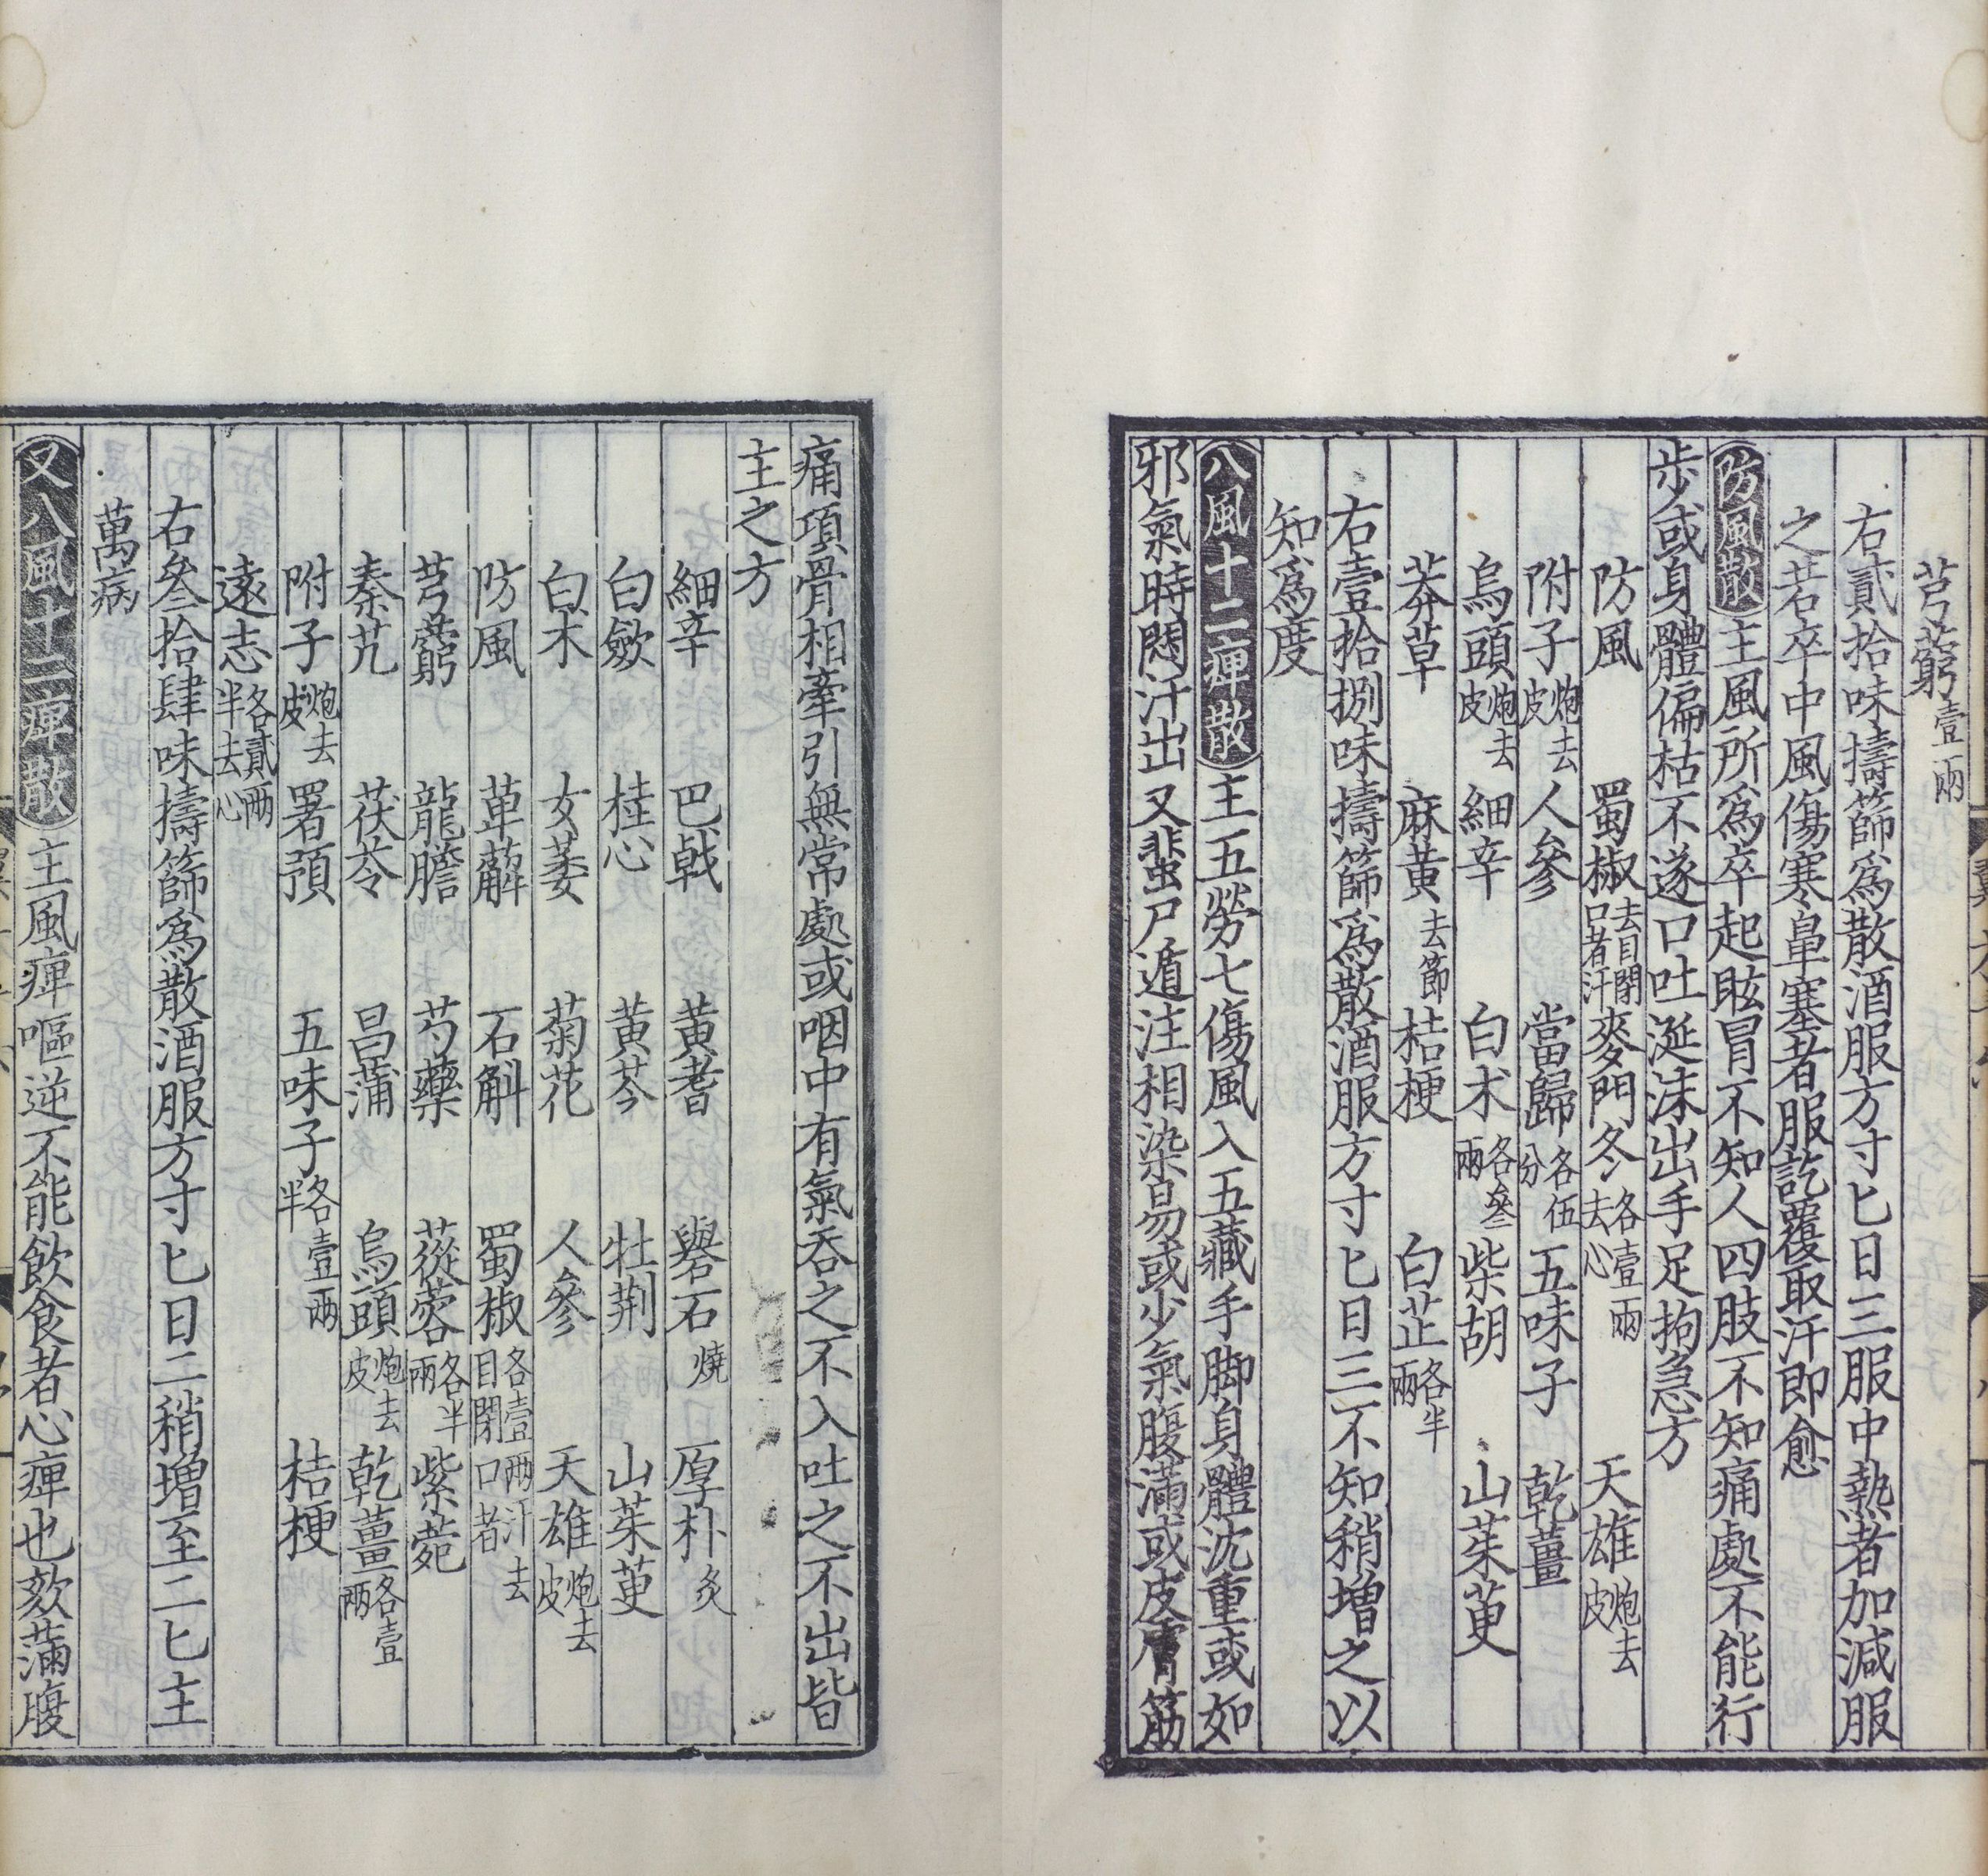 芎藭壹兩
右貳拾味擣篩爲散酒服方寸匕日三服中熱者加減服
之若卒中風傷寒鼻塞者服訖覆取汗即愈
防風散主風所爲卒起眩冒不知人四肢不知痛處不能行
步或身體偏枯不遂口吐涎沫出手足拘急方
防風 蜀椒去目閉口者汗 麥門冬各壹兩去心 天雄炮去皮
附子炮去皮 人參 當歸各伍分 五味子 乾薑
烏頭炮去皮 細辛 白朮各叄兩 柴胡 山茱萸
莽草 麻黃去節 桔梗 白芷各半兩
右壹拾捌味擣篩爲散酒服方寸匕日三不知稍增之以
知爲度
八風十二痺散主五勞七傷風入五藏手脚身體沈重或如
邪氣時悶汗出又蜚尸遁注相染易或少氣腹滿或皮膚筋
痛項骨相牽引無常處或咽中有氣吞之不入吐之不出皆
主之方
細辛 巴戟 黃耆 礜石燒 厚朴炙
白斂 桂心 黃芩 牡荆 山茱萸
白朮 女萎 菊花 人參 天雄炮去皮
防風 萆薢 石斛 蜀椒各壹兩汗去目閉口者
芎藭 龍膽 芍藥 蓯蓉各半兩 紫菀
秦艽 茯苓 昌蒲 烏頭炮去皮 乾薑各壹兩
附子炮去皮 署預 五味子各壹兩半 桔梗
遠志各貳兩半去心
右叄拾肆味擣篩爲散酒服方寸匕日二稍增至二匕主
萬病
又八風十二痺散主風痺嘔逆不能飲食者心痺也欬滿腹